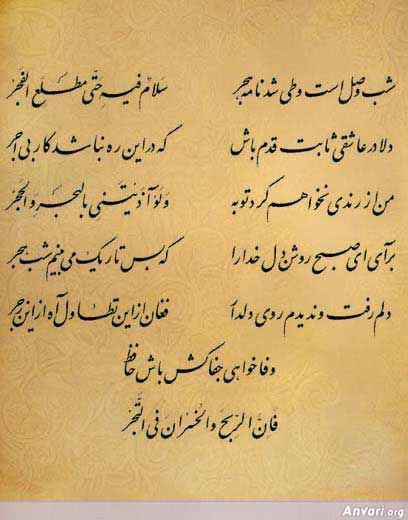 شب وصل است و طی شد نامه هجر سلامٌ فیه حَتّی مطلع الفَجر
دلا در عاشقی ثابت قدم باش که در این ره نباشد کار بی اجر
من از رندی نخواهم کرد توبه وَلَو آذَیتَنی بالهَجرِ والحَجر
برآی ای صبح روشن دل خدا را که بس تاریک می بینم شب هجر
دلم رفت و ندیدم روی دلدار فغان از این تطاول آه از این زجر
وفا خواهی جفاکش باش حافظ
فَاِنَّ الرِّبحَ والخُسرانَ فی التَّجر
Anvari.org